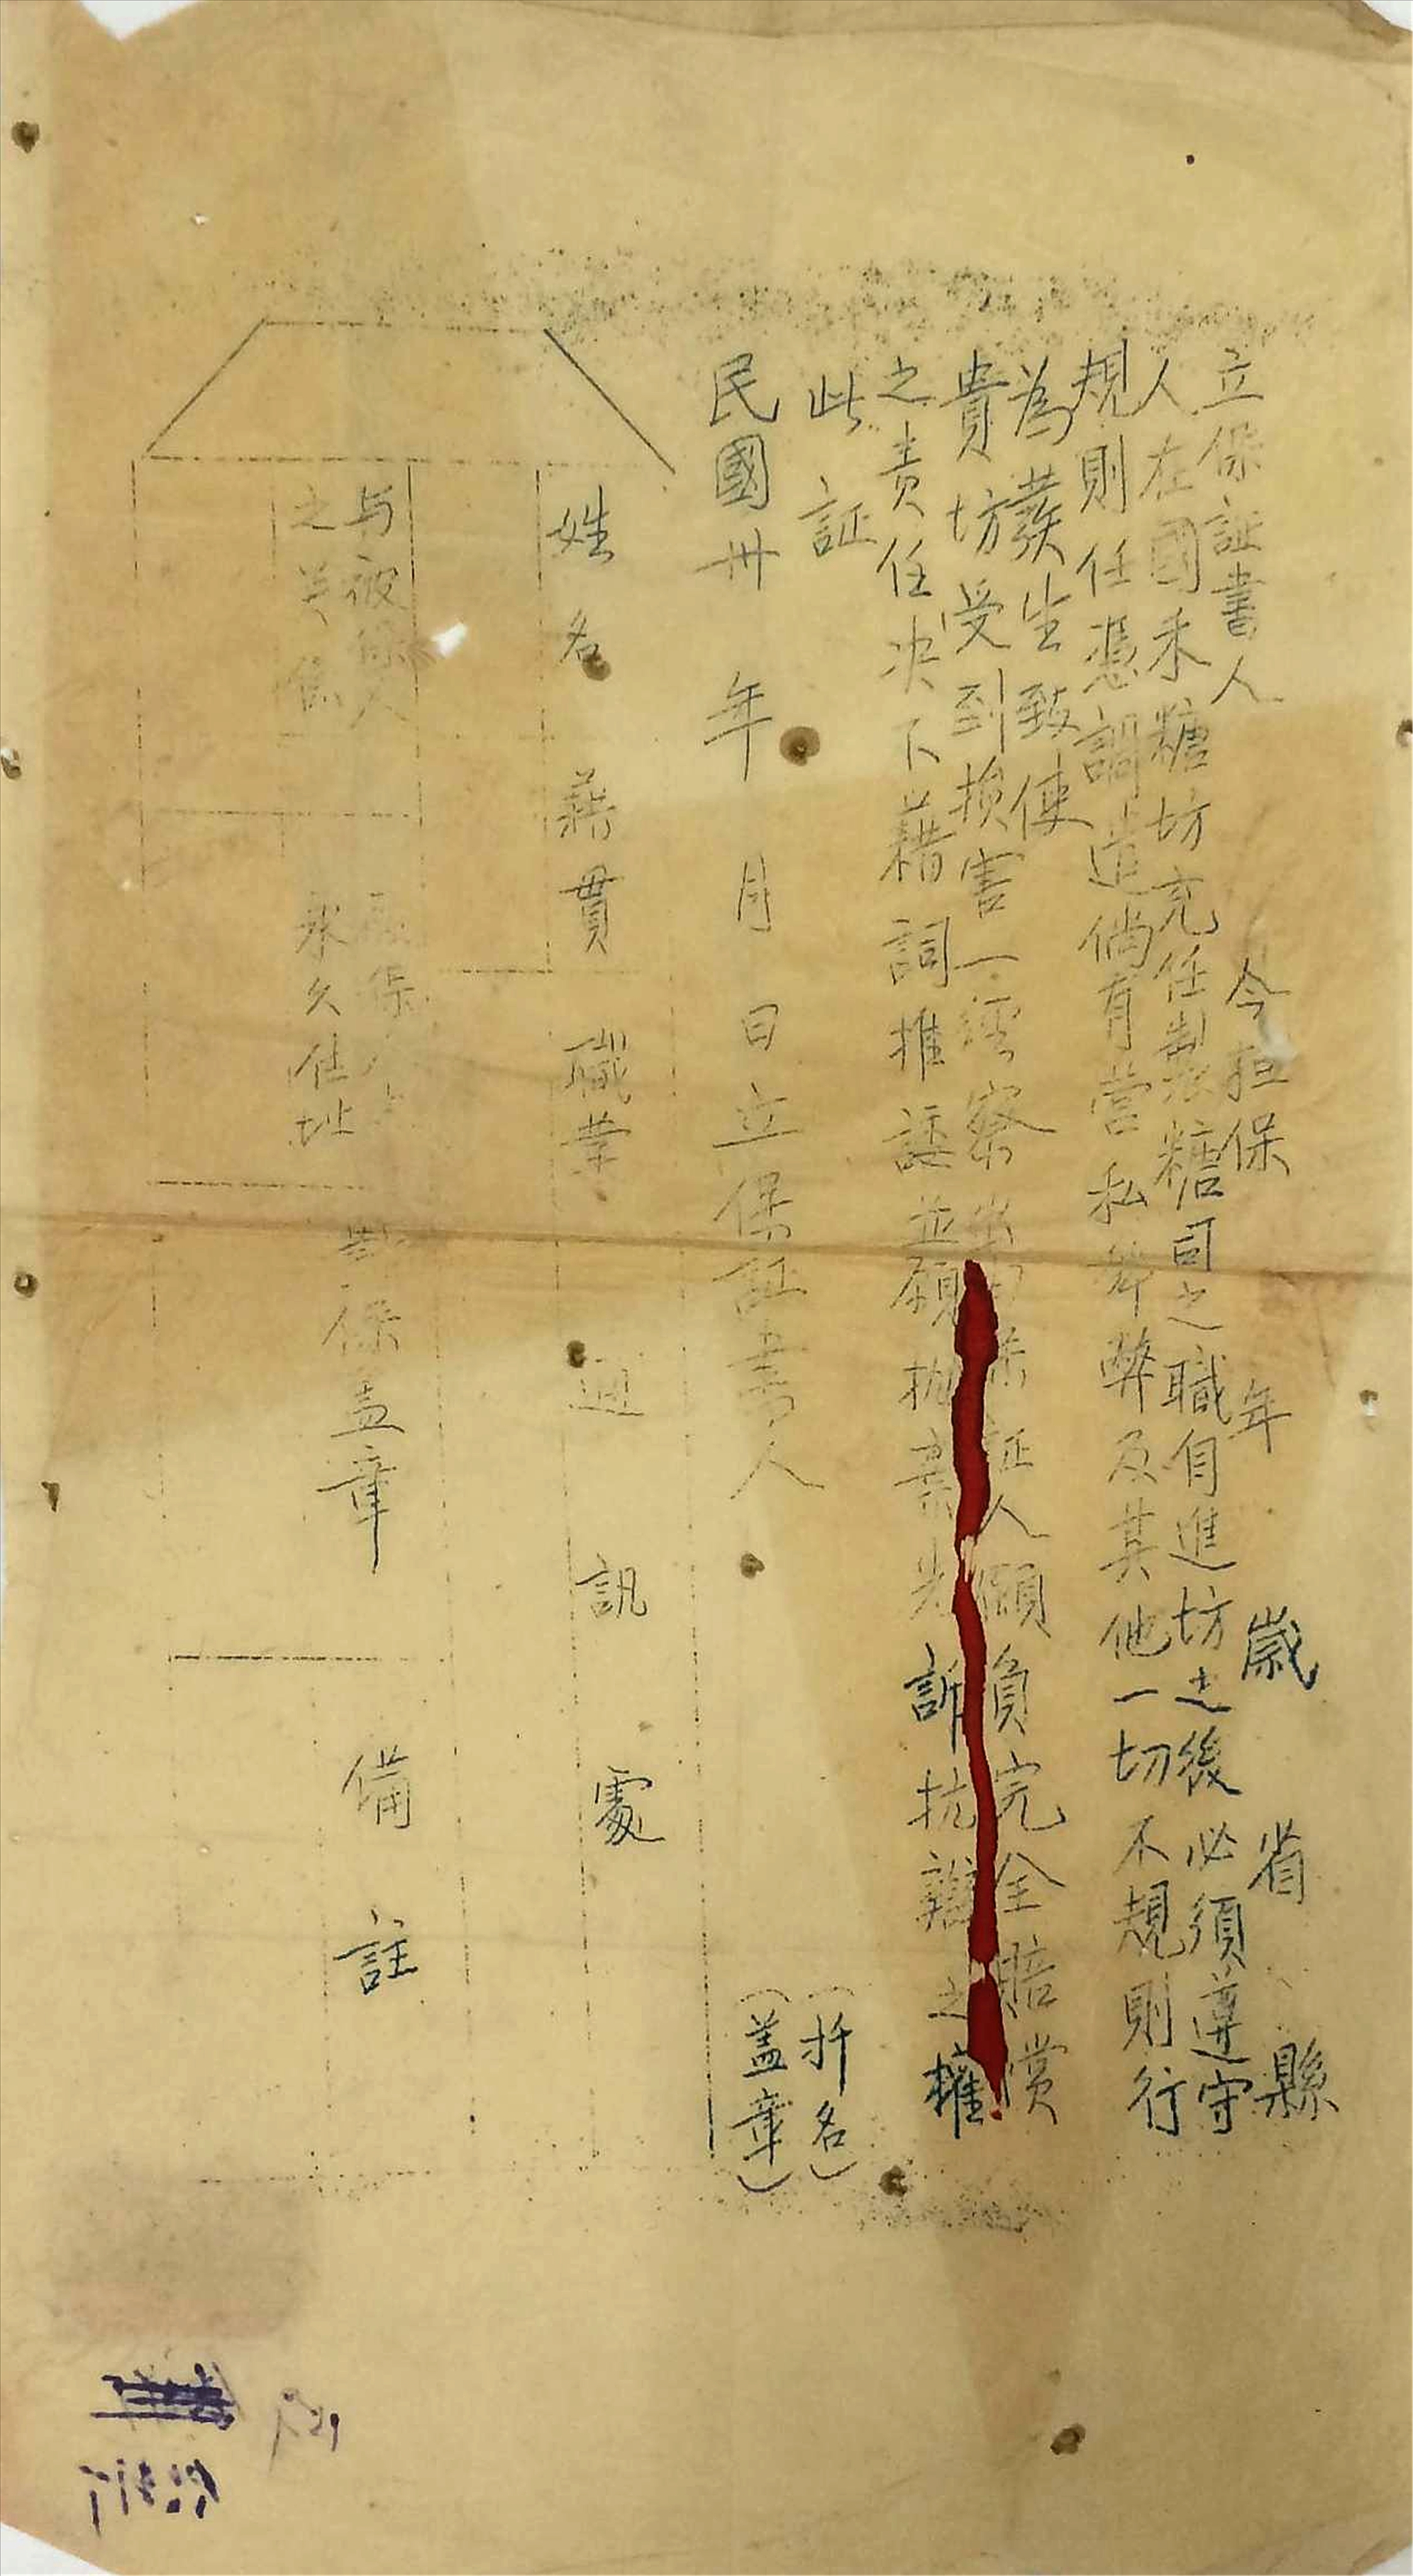 立保証書人 今担保 年 歲 省 縣
人在國釆糖坊充任製糖司之職自進坊之後必須遵守
規則任憑調遣倘有營私舞弊及其他一切不規則行
為發生致使
貴坊受到損害一經察出 保証人願負完全賠償
之責任决不藉詞推諉並願抛棄先訴抗辯之權
此証
民國卅 年 月 日立保証書人
(扦名)
(蓋章)
姓名 藉貫 職業 通訊處
与被保人
之关係
被保人
永久住址
對保盖章
備註